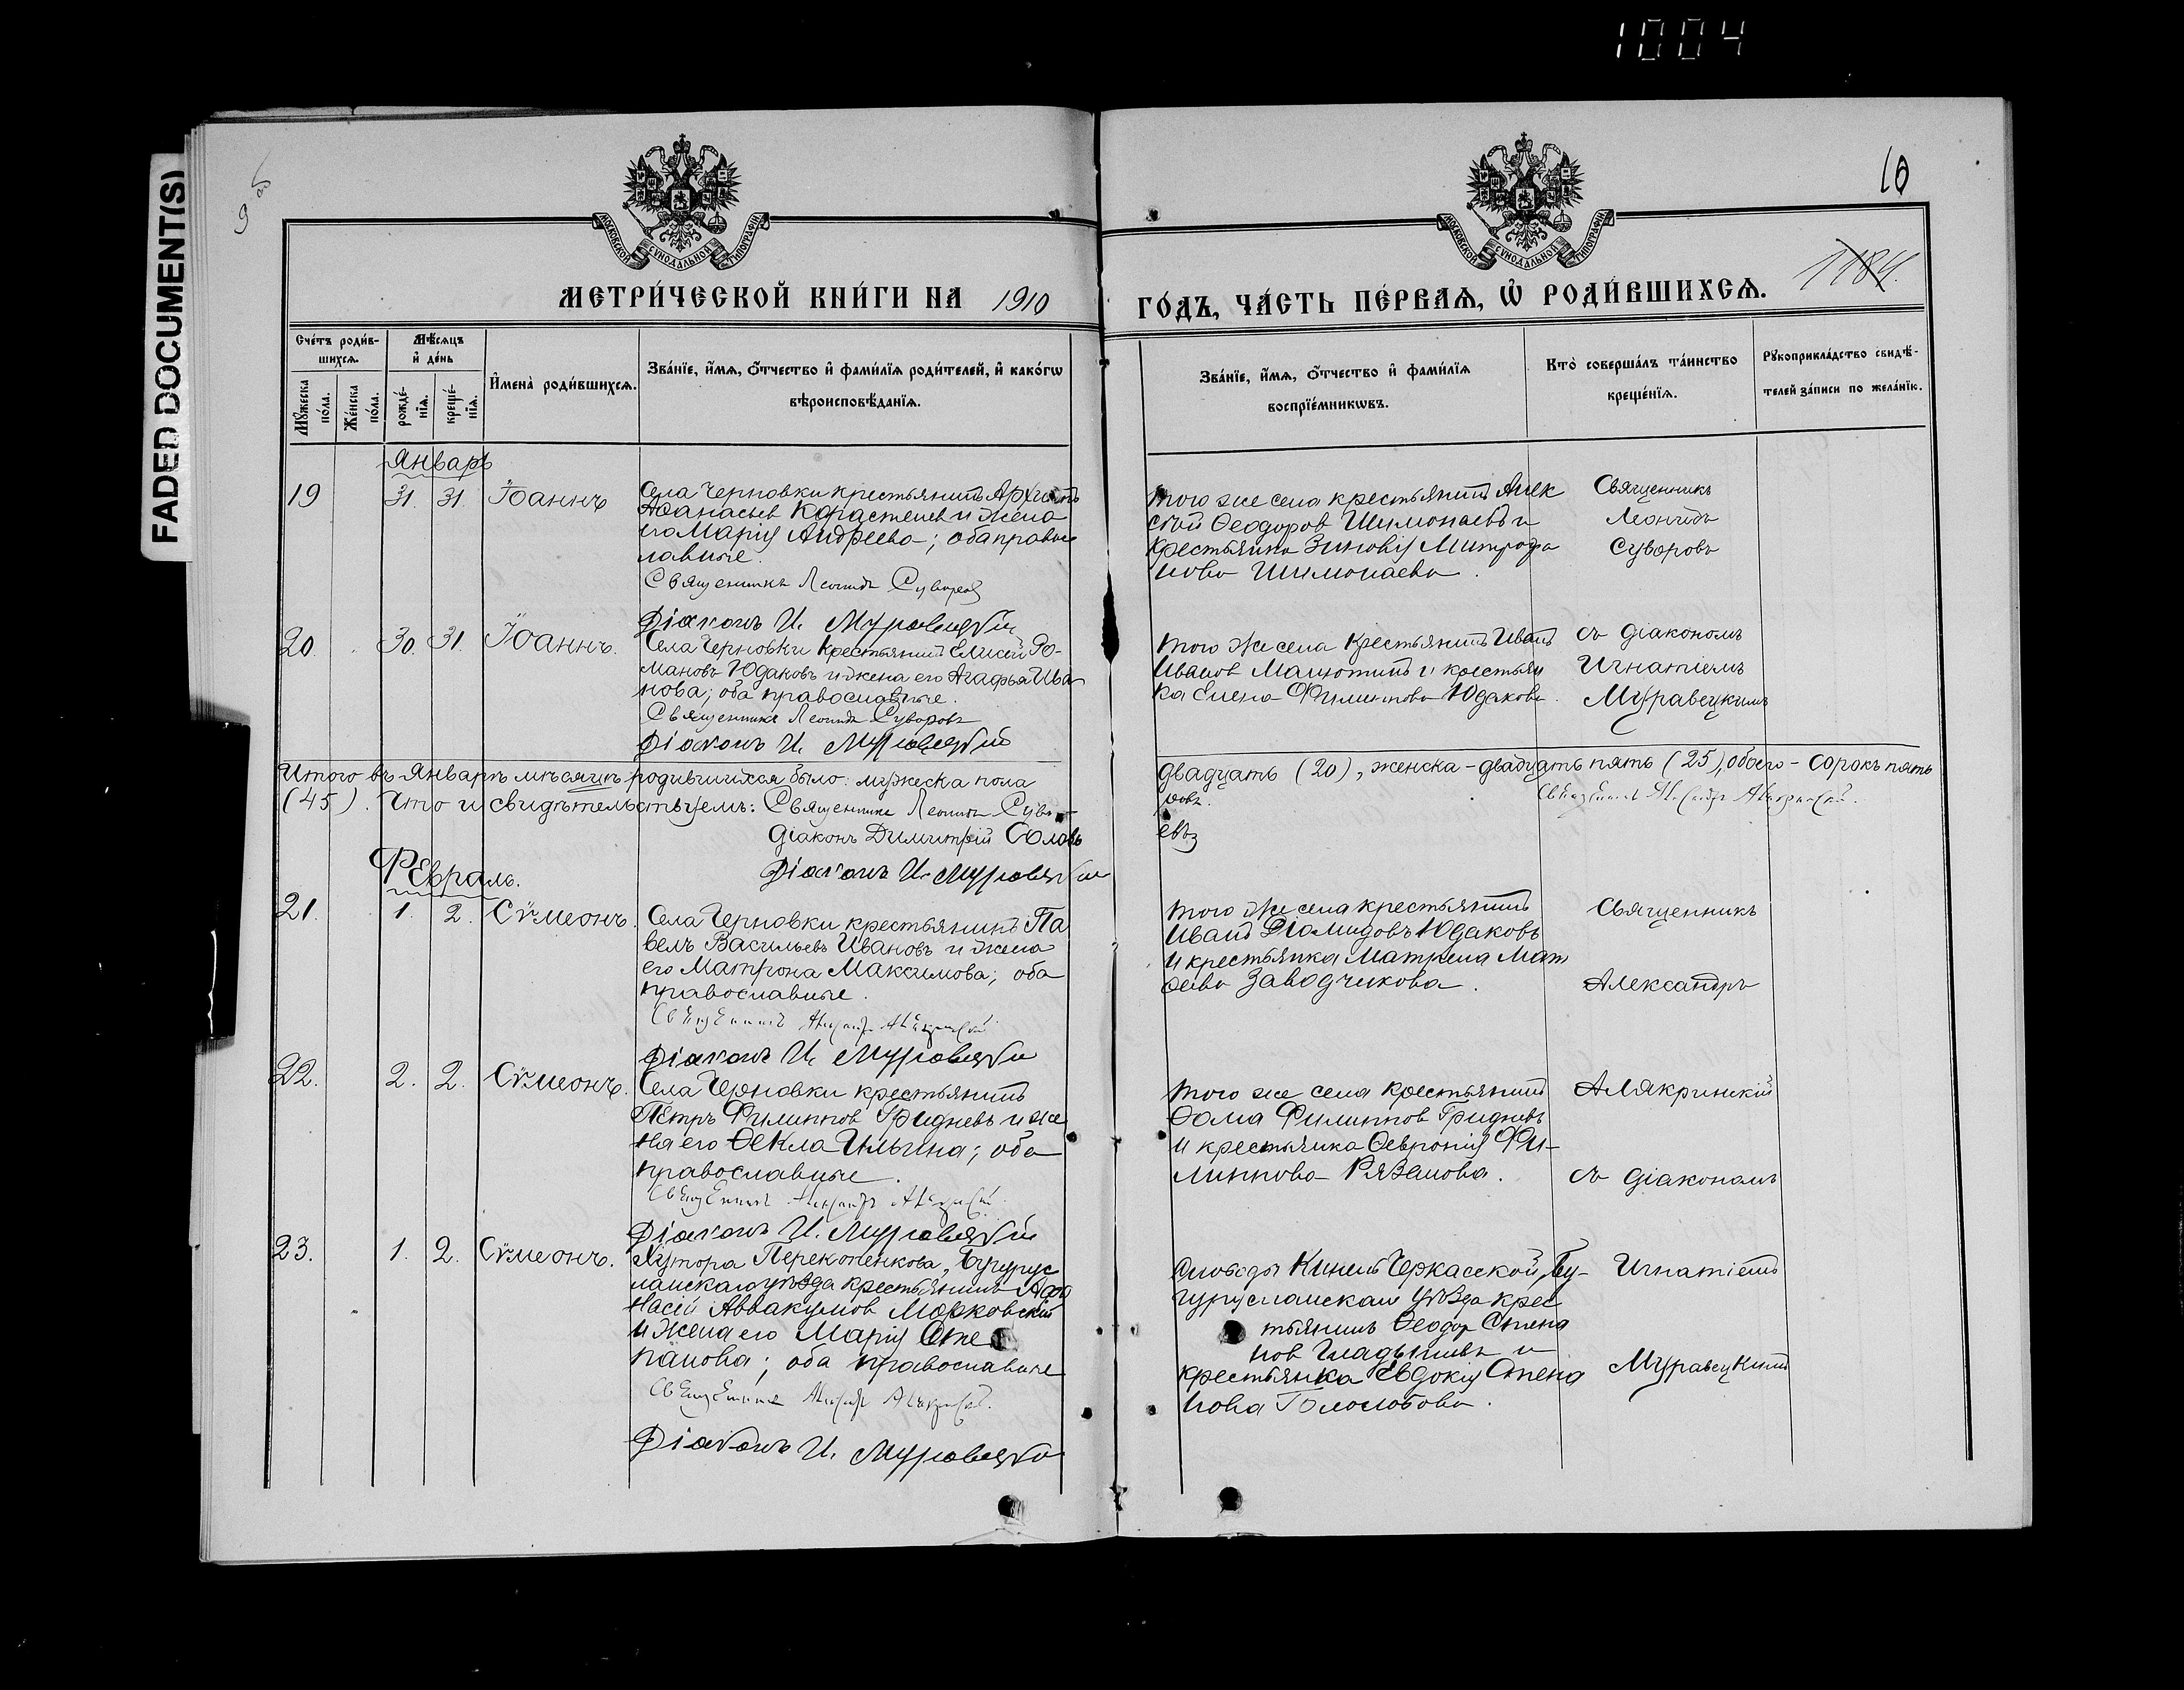 1004
FADED DOCUMENT(S)
9 об
10
МОСКОВСКОЙ СУНОДАЛЬНОЙ ТИПОГРАФІИ
МОСКОВСКОЙ СУНОДАЛЬНОЙ ТИПОГРАФІИ
МЕТРИ́ЧЕСКОЙ КНИ́ГИ НА 1910
ГО́ДЪ, ЧА́СТЬ ПЕ́РВАѦ, Ѡ҆ РОДИ́ВШИХСѦ.
1184.
Сче́тъ роди́в-
шихсѧ.
Мѣ́сѧцъ
и҆ де́нь
Мꙋ́жеска
по́ла.
Же́нска
по́ла.
рожде́-
нїѧ.
креще́-
нїѧ.
И҆мена̀ роди́вшихсѧ.
Зва́нїе, и҆́мѧ, ѻ҆́тчество и҆ фами́лїѧ роди́телей, и҆ како́гѡ
вѣроисповѣ́данїѧ.
Зва́нїе, и҆́мѧ, ѻ҆́тчество и҆ фами́лїѧ
воспрїе́мникѡвъ.
Кто̀ соверша́лъ та́инство
креще́нїѧ.
Рꙋкоприкла́дство свидѣ́-
телей за́писи по жела́нїю.
Январь
19 31. 31. Іоаннъ
Села Черновки крестьянинъ
Аѳанасьев Карастелев и жена
его Марія Андреева; оба правос
лавные.
Священникъ Леонидъ Суворов
Діаконъ И. Муравецкій
того же села крестьянинъ Алек
сѣй Ѳеодоров Шимонаевъ и
крестьянка Зиновія Митрофа
нова Шимонаева.
Священникъ
Леонидъ
Суворовъ
20. 30. 31. Іоаннъ.
Села Черновки крестьянинъ Елисей Ро-
мановъ Юдаковъ и жена его Агафья Ива
нова; оба православные.
Священникъ Леонидъ Суворовъ
Діаконъ И. Муравецкій
того же села крестьянинъ Иванъ
Иванов и крестьян
ка Елена Филиппова Юдакова.
съ діакономъ
Игнатіемъ
Муравецкимъ
Итого въ Январѣ мѣсяцѣ родившихся было: мужеска пола
двадцать (20), женска - двадцать пять (25), обоего - сорокъ пять
(45). Что и свидѣтельствуемъ: Священникъ Леонидъ Суво-
ровъ.
Священникъ Александръ Алякринскій.
діаконъ Димитрій Соловь
евъ
Діаконъ И. Муравецкій
Февраль.
21. 1. 2. Сѵмеонъ.
Села Черновки крестьянинъ Па
велъ Васильевъ Ивановъ и жена
его Матрона Максимова; оба
православные.
Священникъ Александръ Алякринскій
Діаконъ И. Муравецкій
того же села крестьянинъ
Иванъ Діомидовъ Юдаковъ
и крестьянка Матрена Мат
ѳеева Заводчикова.
Священникъ
Александръ
22. 2. 2. Сѵмеонъ.
Села Черновки крестьянинъ
Петръ Филиппов Гридневъ и же
на его Ѳекла Ильина; оба
православные.
Священникъ Александръ Алякринскій
Діаконъ И. Муравецкій
того же села крестьянинъ
Ѳома Филиппов Гридневъ
и крестьянка Ѳевронія Фи-
липпова Рязанова.
Алякринскій
съ діакономъ
23. 1. 2. Сѵмеонъ.
Хутора Перекопенкова, Бугурус
ланскаго уѣзда крестьянинъ Аѳа
насій Аввакумов Морковскій
и жена его Марія Сте
панова; оба православные
Священникъ Александръ Алякринскій.
Діаконъ И. Муравецкій
Слободы Кинель Черкасской, Бу-
гурусланскаго уѣзда крес
тьянинъ Ѳеодор Степа
нов Гладышевъ и
крестьянка Евдокія Степа
нова Голослобова.
Игнатіемъ
Муравецкимъ